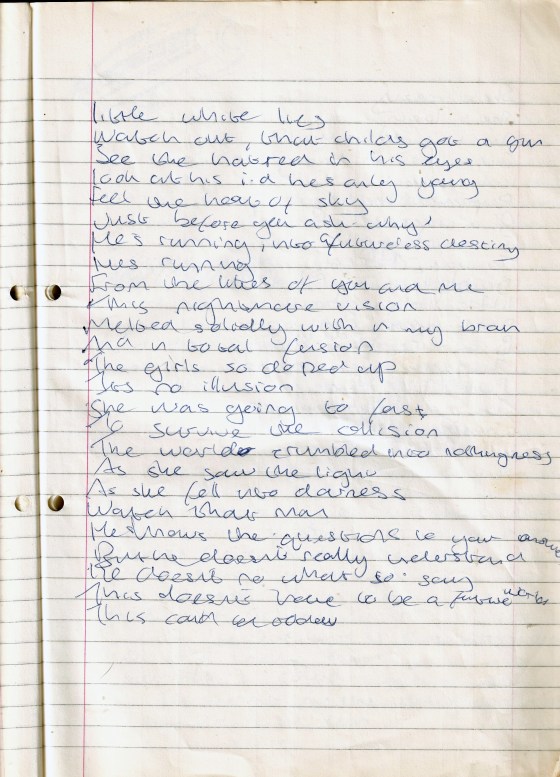 little white lies
Watch out, that childs got a gun
See the hatred in his eyes
look at his i.d hes only young
Feel the heat of sky
Just before you ask why'
He's running, into a futureless destiny
hes running
From the likes of you and me
This nightmare vision
Melted solidly with in my brain
And in total fusion
The girls so doped up
Its no illusion
She was going to fast
To survive the collision
The world crumbled into nothingness
As she saw the light
As she fell into darness
Watch that man
He knows the questions to your
But he doesn't really understand
He doesn't no what so say
This doesn't have to be a Future
This could be